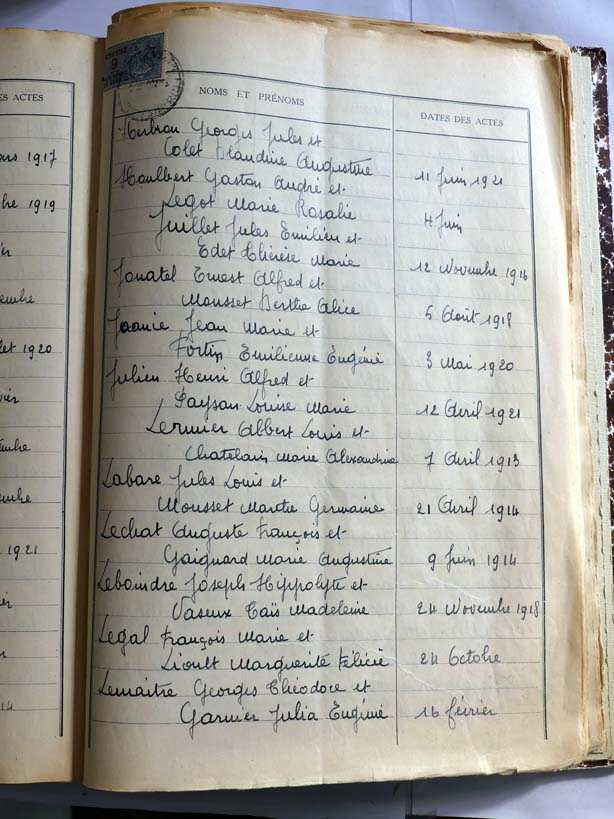 ES ACTES
1917
1919
1920
1921
14
NOMS ET PRÉNOMS
DATES DES ACTES
Georges Jules et
Colet Blandine Augustine 11 Juin 1921
Haulbert Gaston André et
Legot Marie Rosalie 4 Juin
Juillet Jules Emilien et
Edet Thérèse Marie 12 Novembre 1916
Ernest Alfred et
Mousset Berthe Alice 5 Août 1918
Jean Marie et
Fortin Emilienne Eugénie 3 Mai 1920
Julien Henri Alfred et
Paysan Louise Marie 12 Avril 1921
Lermier Albert Louis et
Chatelain Marie Alexandrine 7 Avril 1913
Labare Jules Louis et
Mousset Marthe Germaine 21 Avril 1914
Lechat Auguste François et
Gaignard Marie Augustine 9 Juin 1914
Leboindre Joseph Hippolyte et
Vaseux Madeleine 24 Novembre 1918
Legal François Marie et
Lioult Marguerite Félicie 24 Octobre
Lemaître Georges Théodore et
Garnier Julia Eugénie 16 février